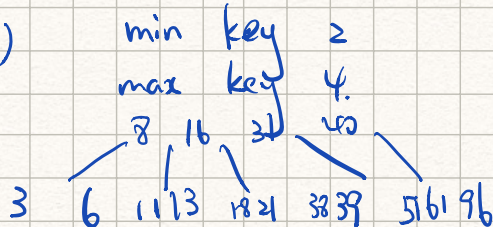 )
min key 2
max key 4.
8 16 31 40
3 6 11 13 18 21 38 39 51 61 96